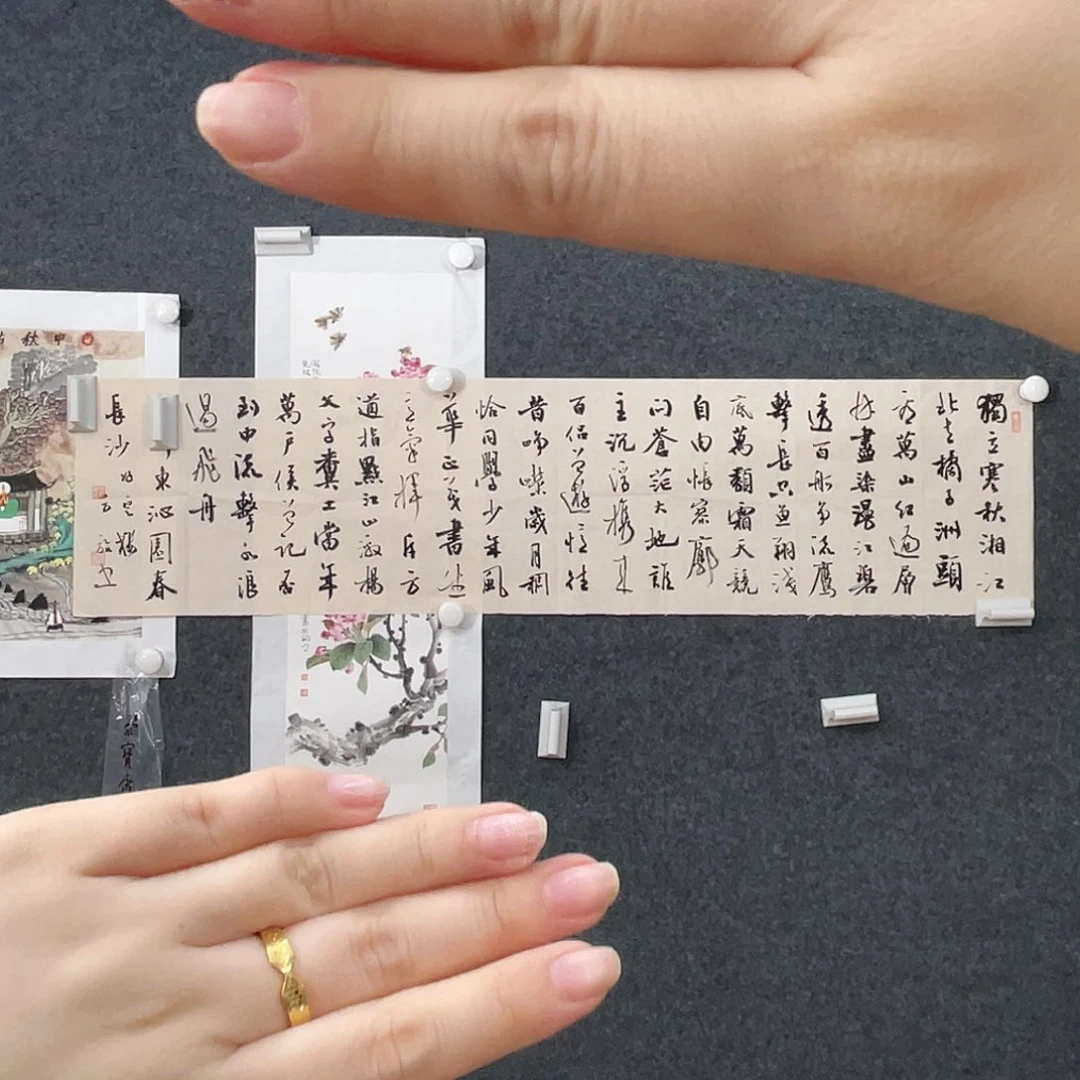 獨立寒秋湘江
北去橘子洲頭
看萬山红遍層
林盡染漫江碧
透百舸爭流鷹
擊長空魚翔淺
底萬類霜天競
自由悵寥廓
问蒼茫大地誰
主沉浮攜來
百侣曾遊憶往
昔崢嶸歲月稠
恰同學少年風
華正茂書生
意氣揮斥方
遒指點江山激揚
文字糞土當年
萬户侯曾記否
到中流擊水浪
遏飛舟
東沁園春
長沙